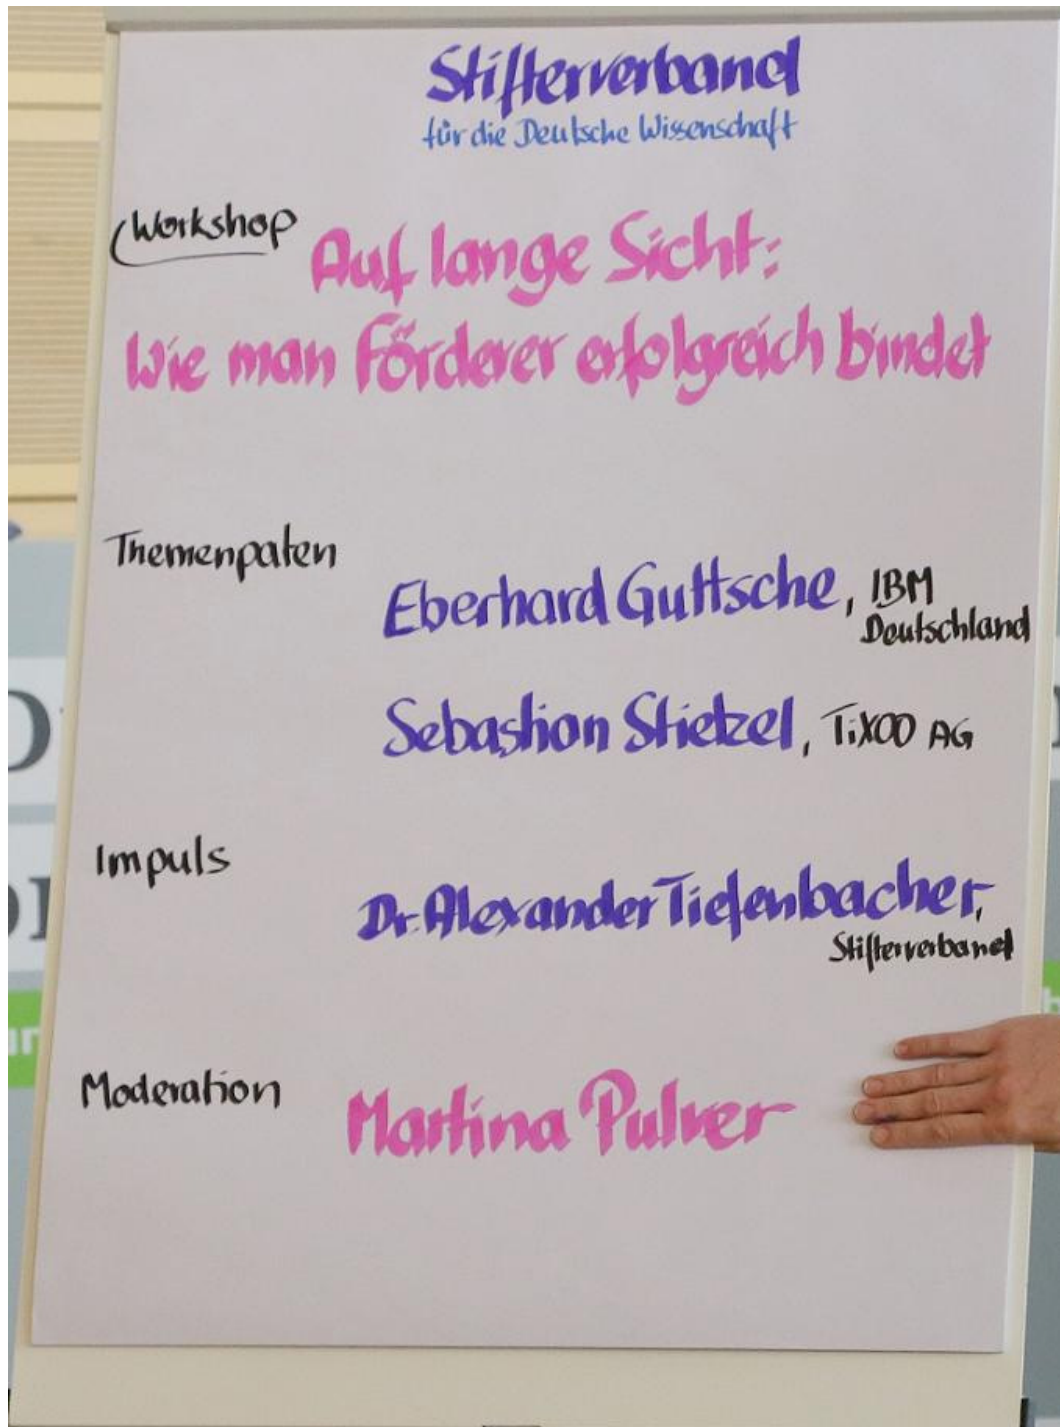 Stifterverband
für die Deutsche Wissenschaft
Workshop Auf lange Sicht:
Wie man Förderer erfolgreich bindet
Themenpaten
Eberhard Guttsche, IBM
Deutschland
Sebastian Stietzel, TiXOO AG
Impuls
Dr. Alexander Tiefenbacher,
Stifterverband
Moderation Martina Pulver